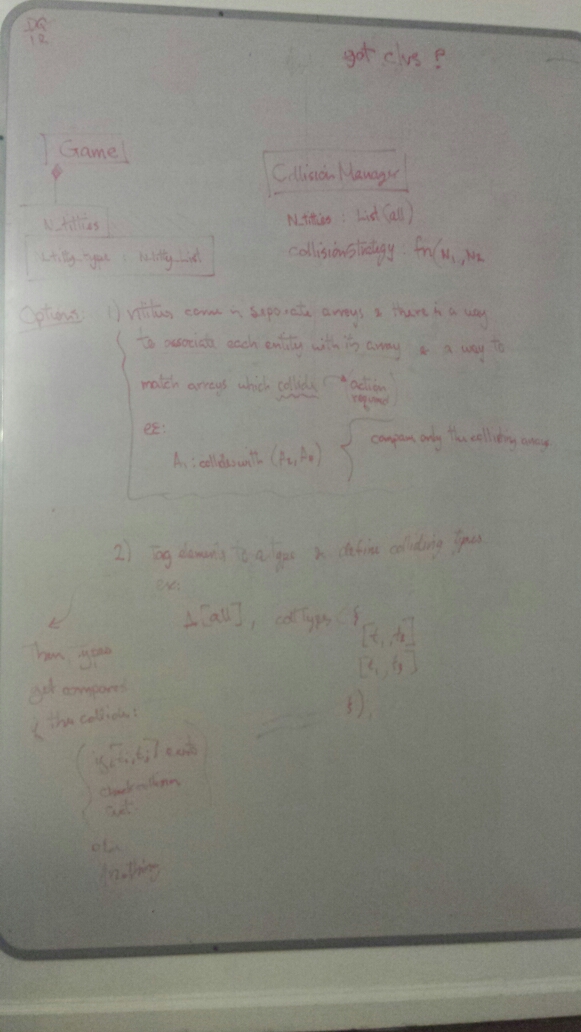 got clus ?
Game
Collision Manager
N_tities
N_tities : List(all)
collisionStrategy : fn(N1, N2
Options: 1) ntities come in separate arrays & there is a way
to associate each entity with its array & a way to
match arrays which collide (action
required)
ex:
A1 : collides with (A2, A3)
compare only the colliding arrays
2) Tag elements to a type & define colliding types
ex:
A[all], collTypes {
[t1, t2]
[t1, t3]
}),
Then,
get compared
the collision:
exists
check collision
or
nothing